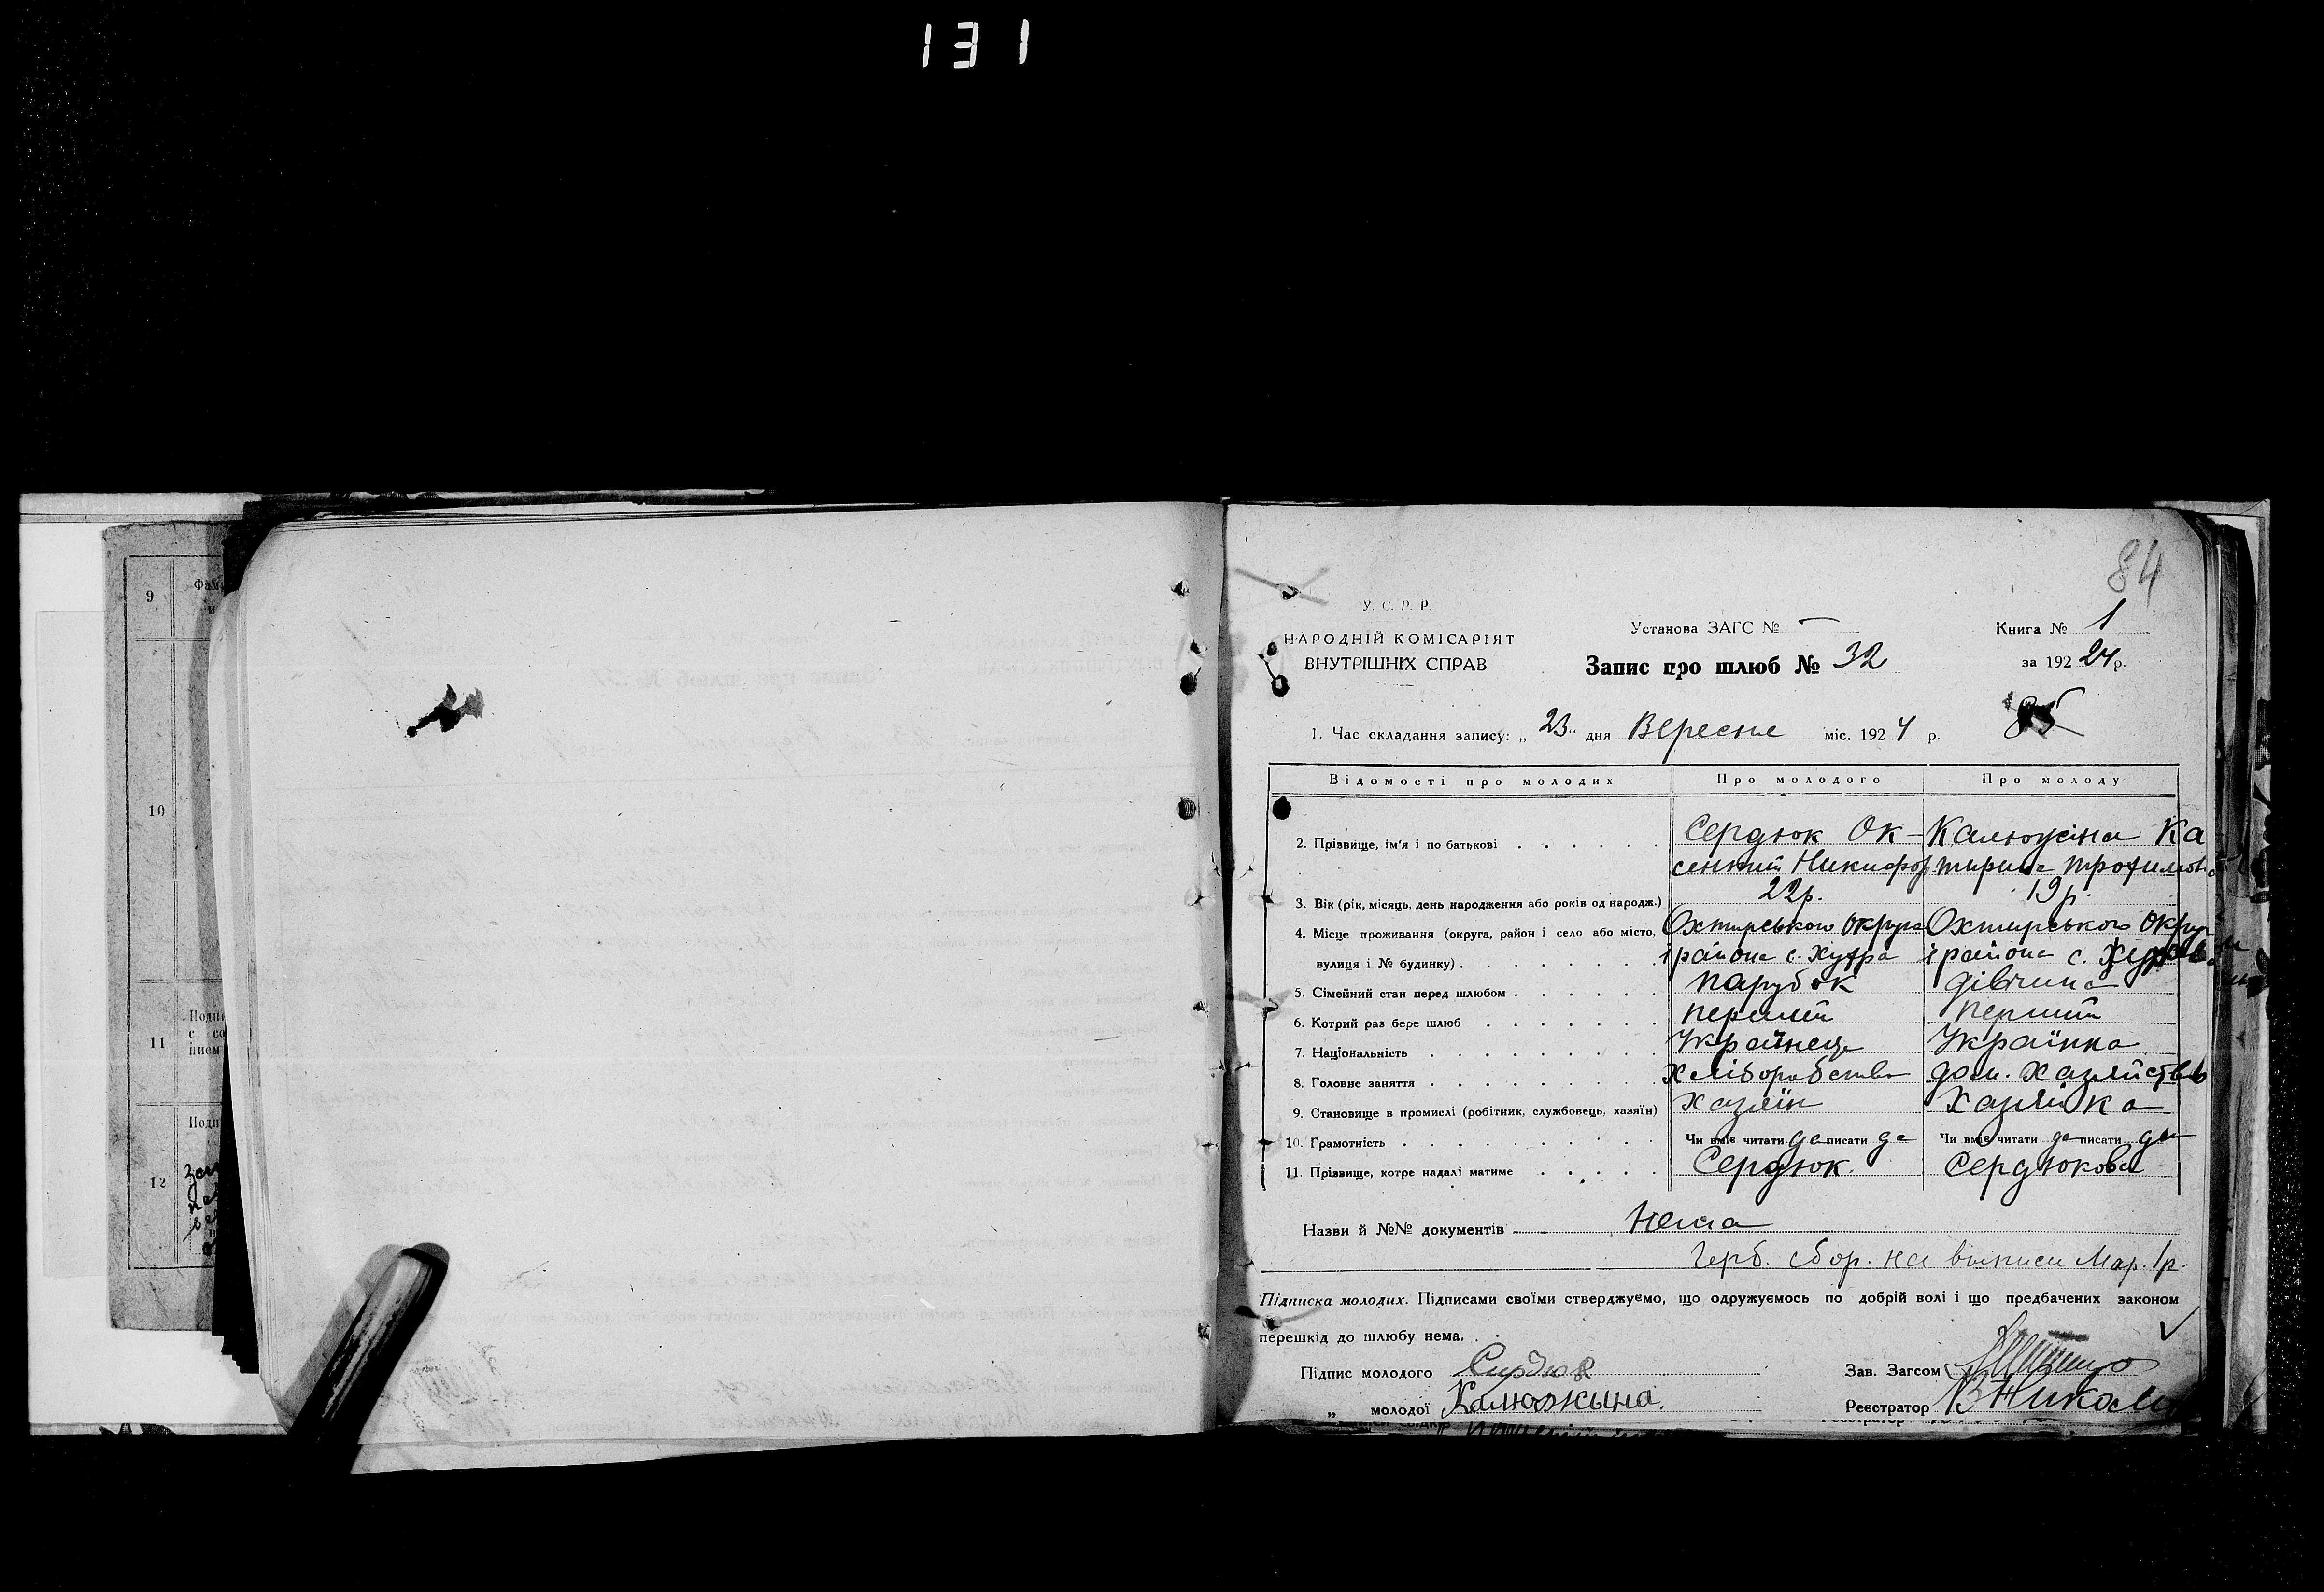 131
84
У. С. Р. Р.
НАРОДНІЙ КОМІСАРІЯТ
ВНУТРІШНІХ СПРАВ
Установа ЗАГС № —
Запис про шлюб № 32
Книга № 1
за 192 24 р.
85
1. Час складання запису: „ 23 " дня Вересне міс. 192 4 р.
Відомості про молодих Про молодого Про молоду
2. Прізвище, ім'я і по батькові Сердюк Ок- Калюжіна Ка
сентий Никифор. тирина Трофимов
3. Вік (рік, місяць, день народження або років од народж.) 22 р. 19 р.
4. Місце проживання (округа, район і село або місто, Охтирського округа Охтирського округ
вулиця і № будинку) 1 района с. 1 района с.
5. Сімейний стан перед шлюбом парубок дівчина
6. Котрий раз бере шлюб перший перший
7. Національність Українец Українка
8. Головне заняття хліборобство дом. хазяйств
9. Становище в промислі (робітник, службовець, хазяїн) хазяїн хазяйка
10. Грамотність Чи вміє читати да писати да Чи вміє читати да писати да
11. Прізвище, котре надалі матиме Сердюк Сердюкова
Назви й №№ документів Нема
Герб. сбор. на выписи Мар. 1р.
Підписка молодих. Підписами своїми стверджуємо, що одружуємось по добрій волі і що предбачених законом
перешкід до шлюбу нема.
Підпис молодого Сирдюк Зав. Загсом
„ молодої Калюжына. Реєстратор В Никола
9
10
11
12